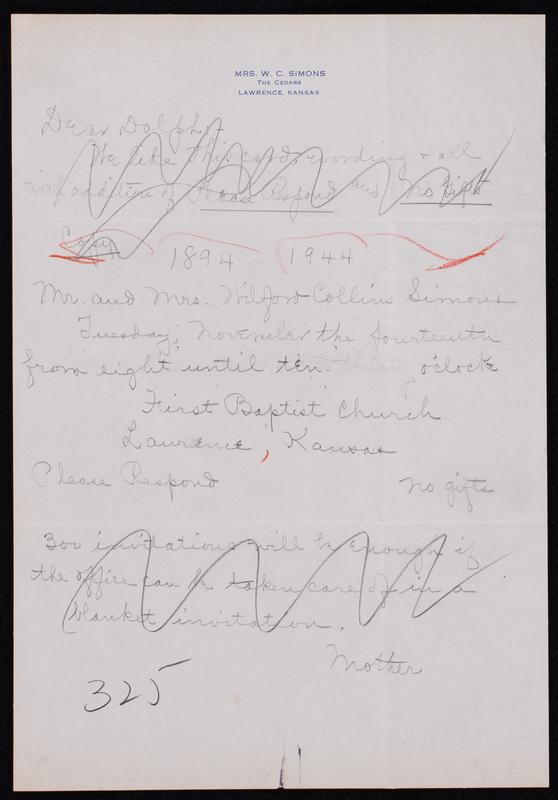 MRS. W. C. SIMONS
THE CEDARS
LAWRENCE, KANSAS
Dear Dolph,
We like this card, wording & all
with addition of Please Respond and No Gifts
Copy
1894 - 1944
Mr. and Mrs. Wilford Collins Simons
Tuesday, November the fourteenth
from eight until ten thirty o'clock
First Baptist Church
Lawrence, Kansas
Please Respond no gifts
300 invitations will be enough if
the office can be taken care of in a
blanket invitation.
Mother
325